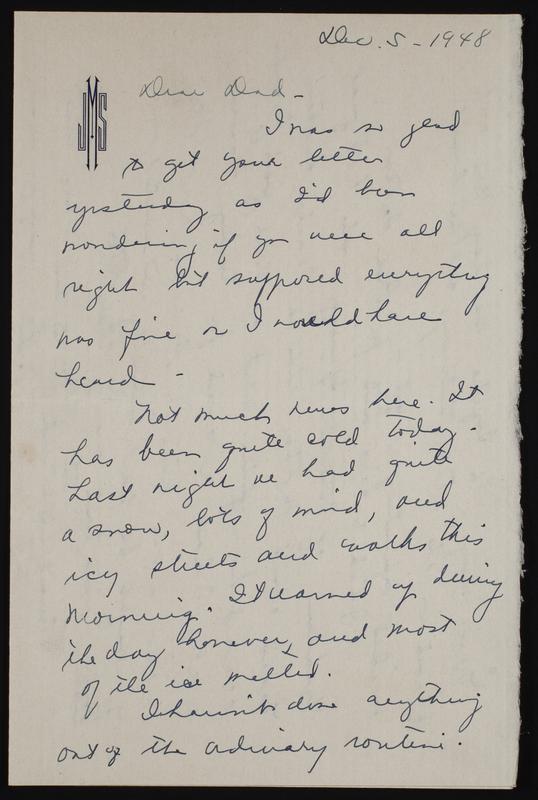 Dec. 5 - 1948
JMS
Dear Dad -
I was so glad
to get your letter
yesterday as I'd been
wondering if you were all
right but supposed everything
was fine or I would have
heard -
Not much news here. It
has been quite cold today.
Last night we had quite
a snow, lots of wind, and
icy streets and walks this
morning. It warmed up during
the day however, and most
of the ice melted.
I haven't done anything
out of the ordinary routine.